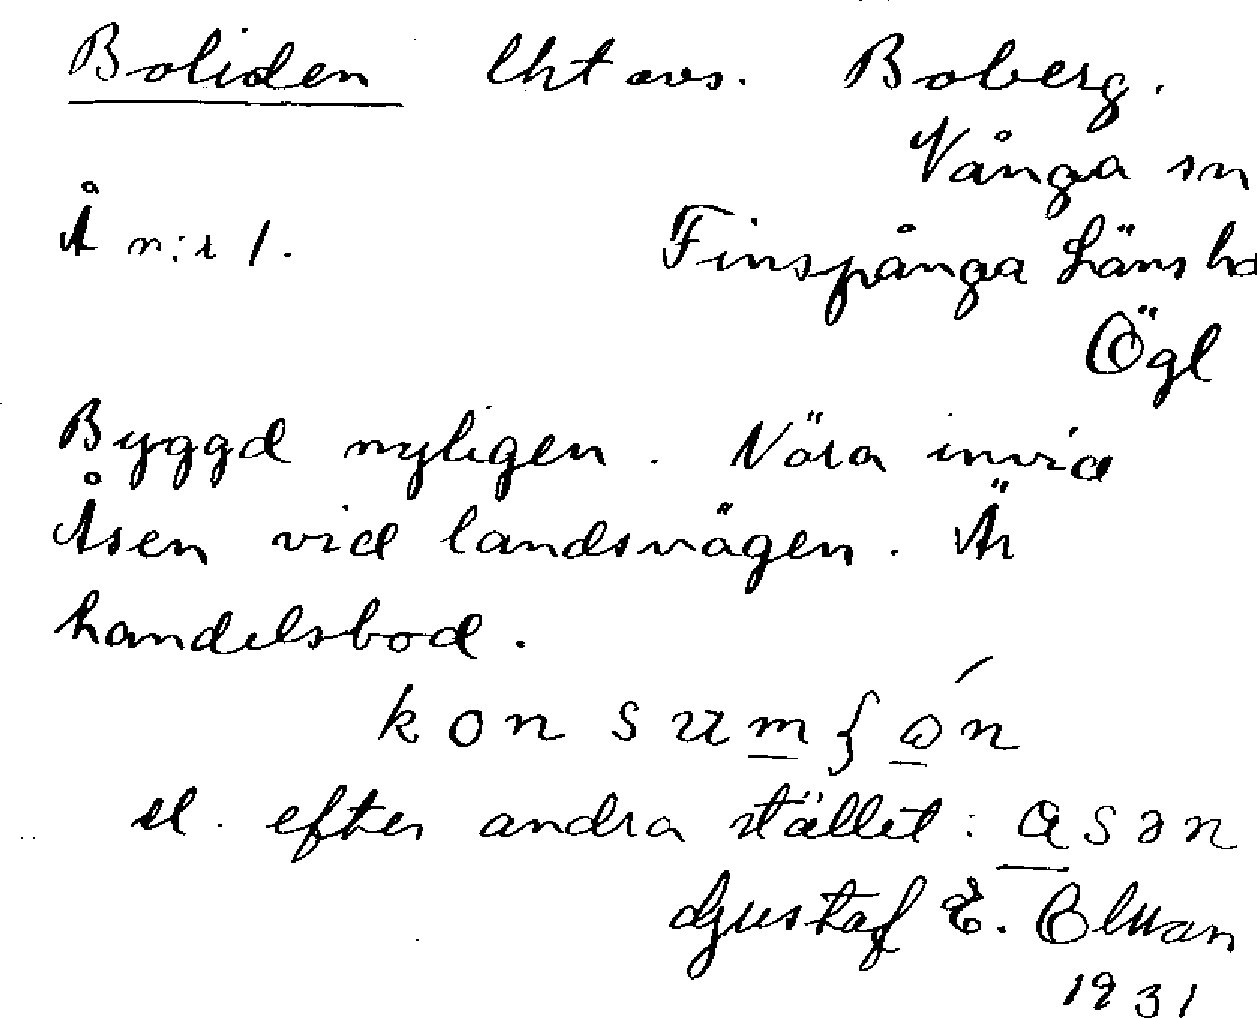 Boliden lht avs. Boberg.
Vånga sn
Å n:r 1. Finspånga Läns hd
Ögl
Byggd nyligen. Nära invid
Åsen vid landsvägen. Är
handelsbod.
konsum
el. efter andra stället: asən
Gustaf E.
1931